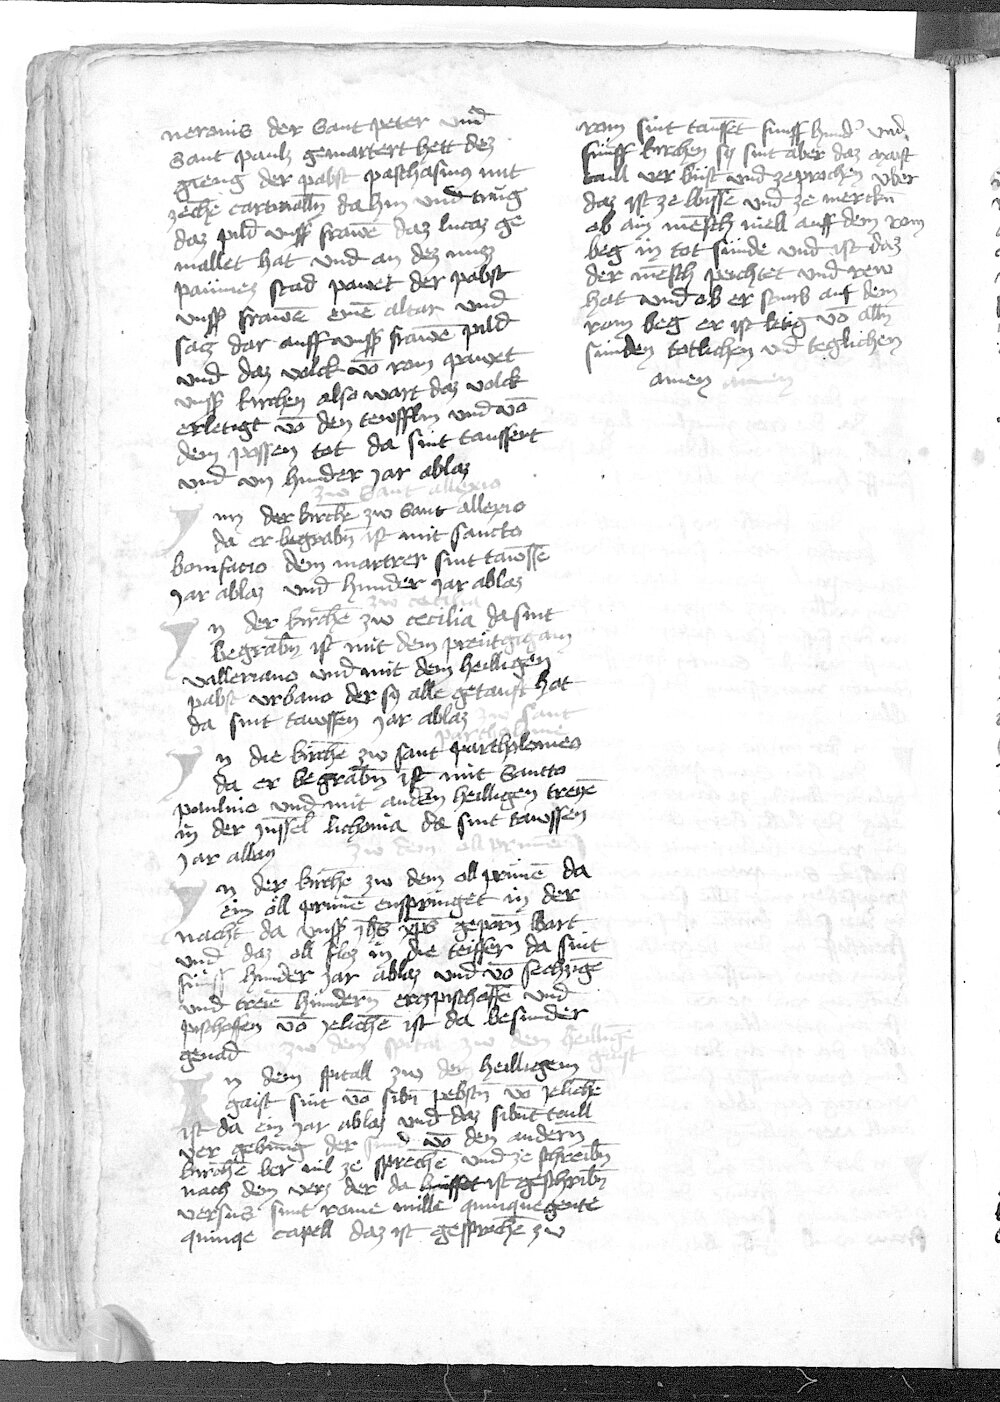 neronis der Sant peter und
Sant pauls gemartert hett des
gieng der pabst paschasius mit
zeche cartinalln da hin und trug
daz pild unsß frawē daz lucas ge
mallet hat und an des nus
paumes stad pawet der pabst
unsß frawē eine altar und
sacz dar auff unsß frawē pild
und daz volck vō rom pawet
unsß kirchen also wart daz volck
erletigt vō den tewffln und vō
dem possen tot da sint taussent
und vn hunder jar ablas
zw Sant allexio
In der kirchē zw Sant allexio
da er begrabn ist mit sancto
bonifacio dem martrer sint tawssē
jar ablas und hunder jar ablas
zw cecilia
In der kirchē zw cecilia da sint
begrabn ist mit dem preutgigam
vallerrano und mit dem heilligen
pabst urbano der sy alle getauft hat
da sint tawssen jar ablas
zw sant
partholome
In die kirchē zw sant partholomeo
da er begrabn ist mit Santto
paulino und mit andern heilligen trewē
in der jnssel lichonia da sint tawssen
jar ablas
zw dem oll prunnē
In der kirchē zw dem oll prunē da
ein oll prunē enspringet in der
nacht da unsß jhs xps geporn wart
und daz oll flos in die teiffer da sint
funff hunder jar ablas und vō sechzigē
und treiē hundern erczpischoffē und
pischoffen vō jelichē ist da besunder
genad
zw dem spital zw dem heilligē
gaist
In dem spitall zw der heilligem
gaist sint vō sibn pebstn vō jelichē
ist da ein jar ablas und daz sibnt taill
ver gebung der sund vō den andern
kirchē ber vil ze sprechē und ze schreibn
nach dem vers der da ist geschribn
versus sunt rome mille quinquegente
quinqe capell daz ist gesprochē zw
rom sint taussēt funff hundr und
funff kirchen sy sint aber daz maist
taill ver bust und zeprochen uber
daz ist ze wissē und ze mercken
ob ain mēsch well auff dem rom
beg in tot sunde und ist daz
der mēsch peichtet und rew
hat und ob er sturb auf dem
rom beg er ist letig vō alln
sunden totlichen und teglichen
amen amen